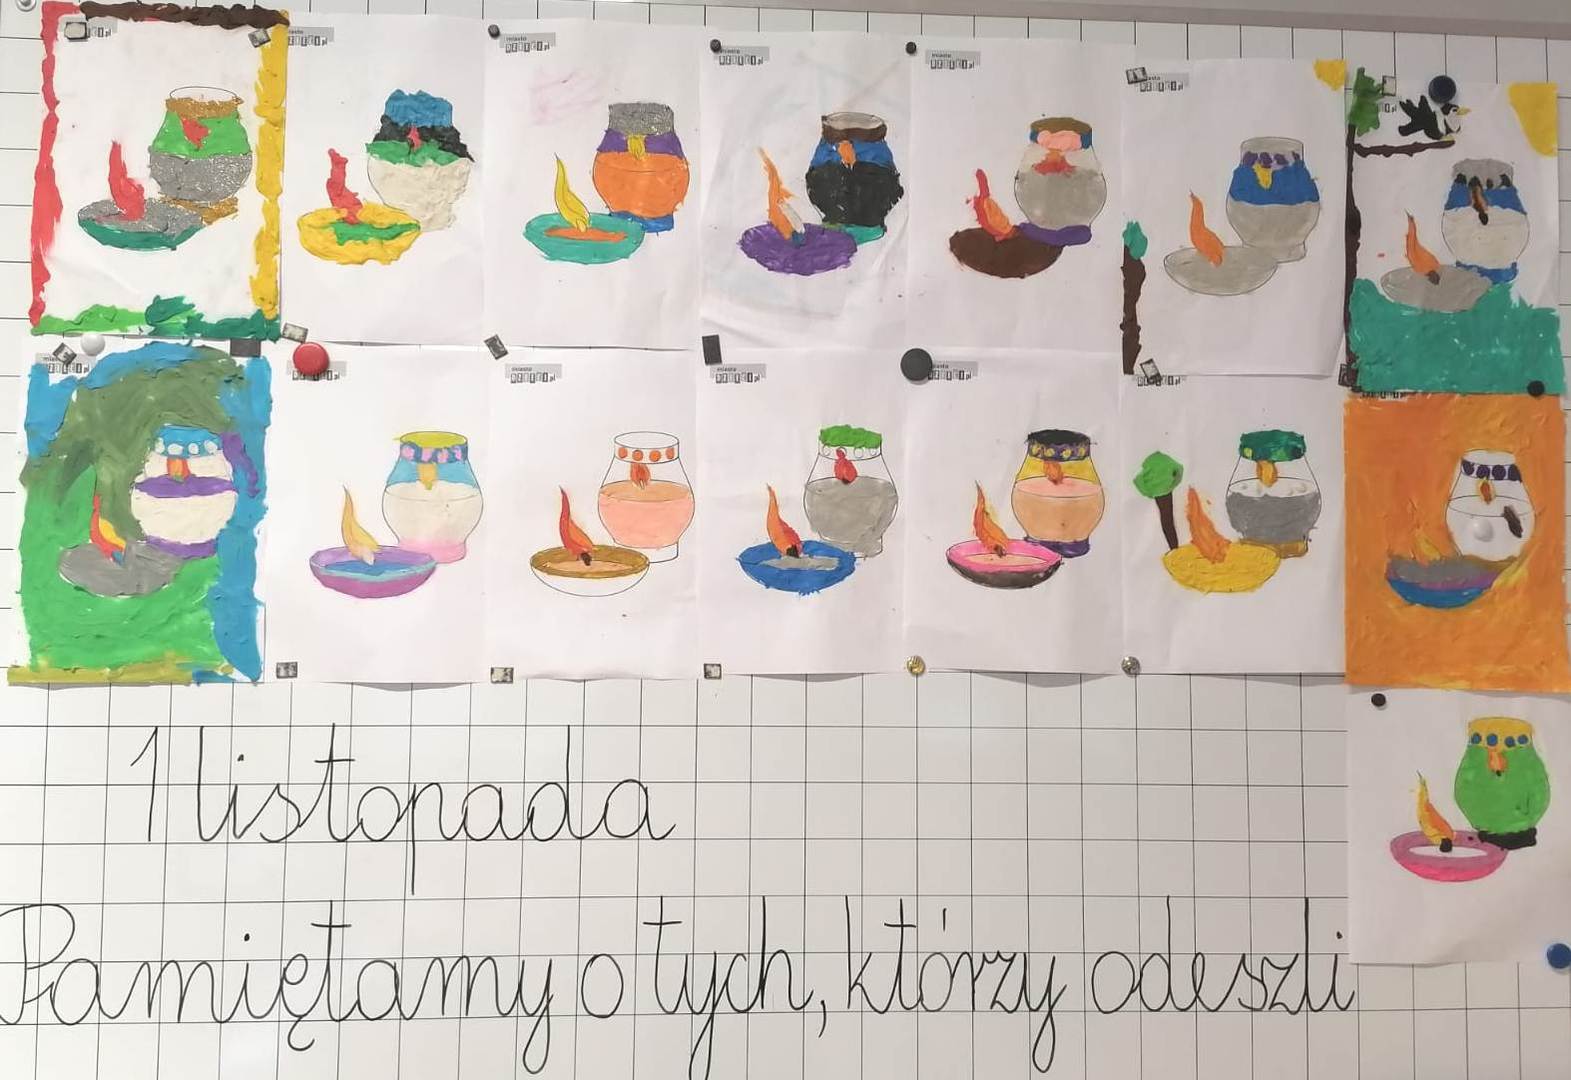 miasto
1 listopada
Pamiętamy o tych, którzy odeszli